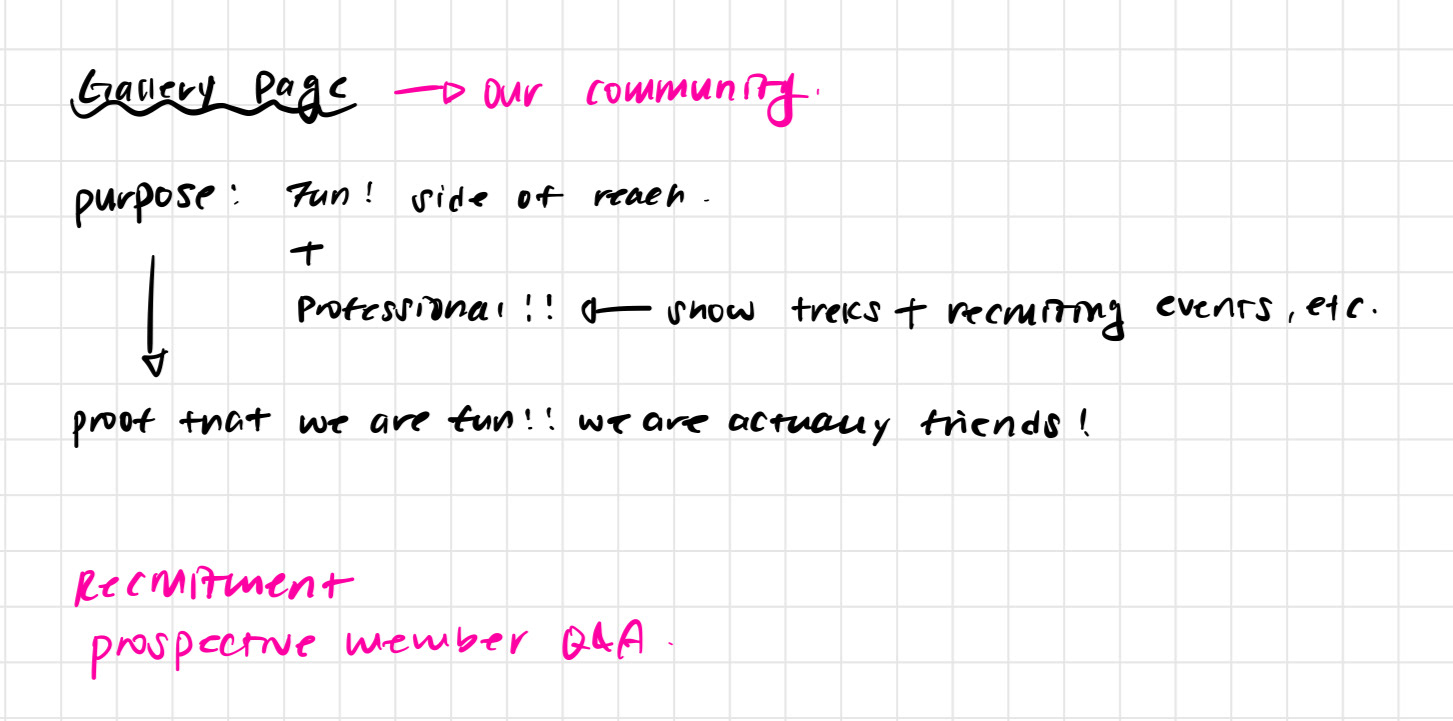 Gallery Page → our community.
purpose: Fun! side of reach.
+
Professional!! ← show treks + recruiting events, etc.
↓
proof that we are fun!! we are actually friends!
Recruitment
prospective member Q&A.